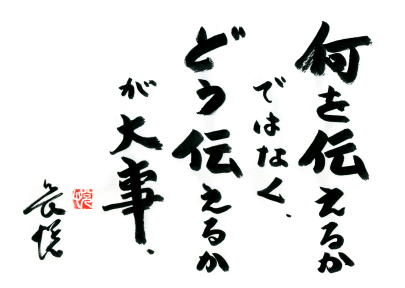 何を伝えるか
ではなく、
どう伝えるか
が大事、